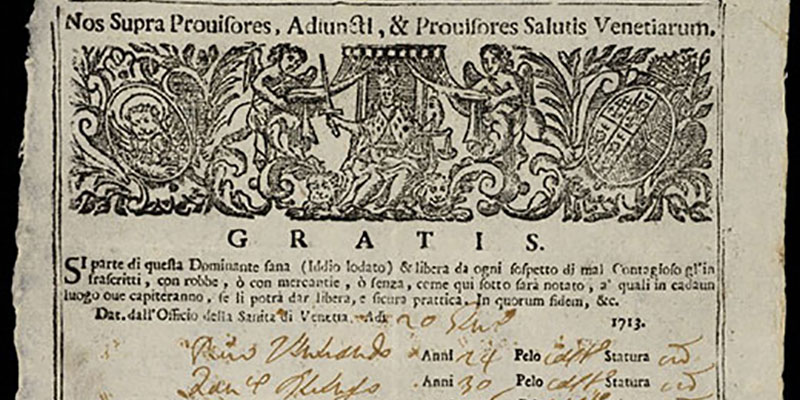 Nos Supra Prouisores, Adiuncti, & Prouisores Salutis Venetiarum.
GRATIS.
SI parte di questa Dominante sana (Iddio lodato) & libera da ogni sospetto di mal Contagioso gl'in
frascritti, con robbe, ò con mercantie, ò senza, come qui sotto sarà notato, a' quali in cadaun
luogo oue capiteranno, se li potrà dar libera, e sicura prattica. In quorum fidem, &c.
Dat. dall'Officio della Sanità di Venetia. Adi 20 1713.
Anni 24 Pelo Statura
Anni 30 Pelo Statura